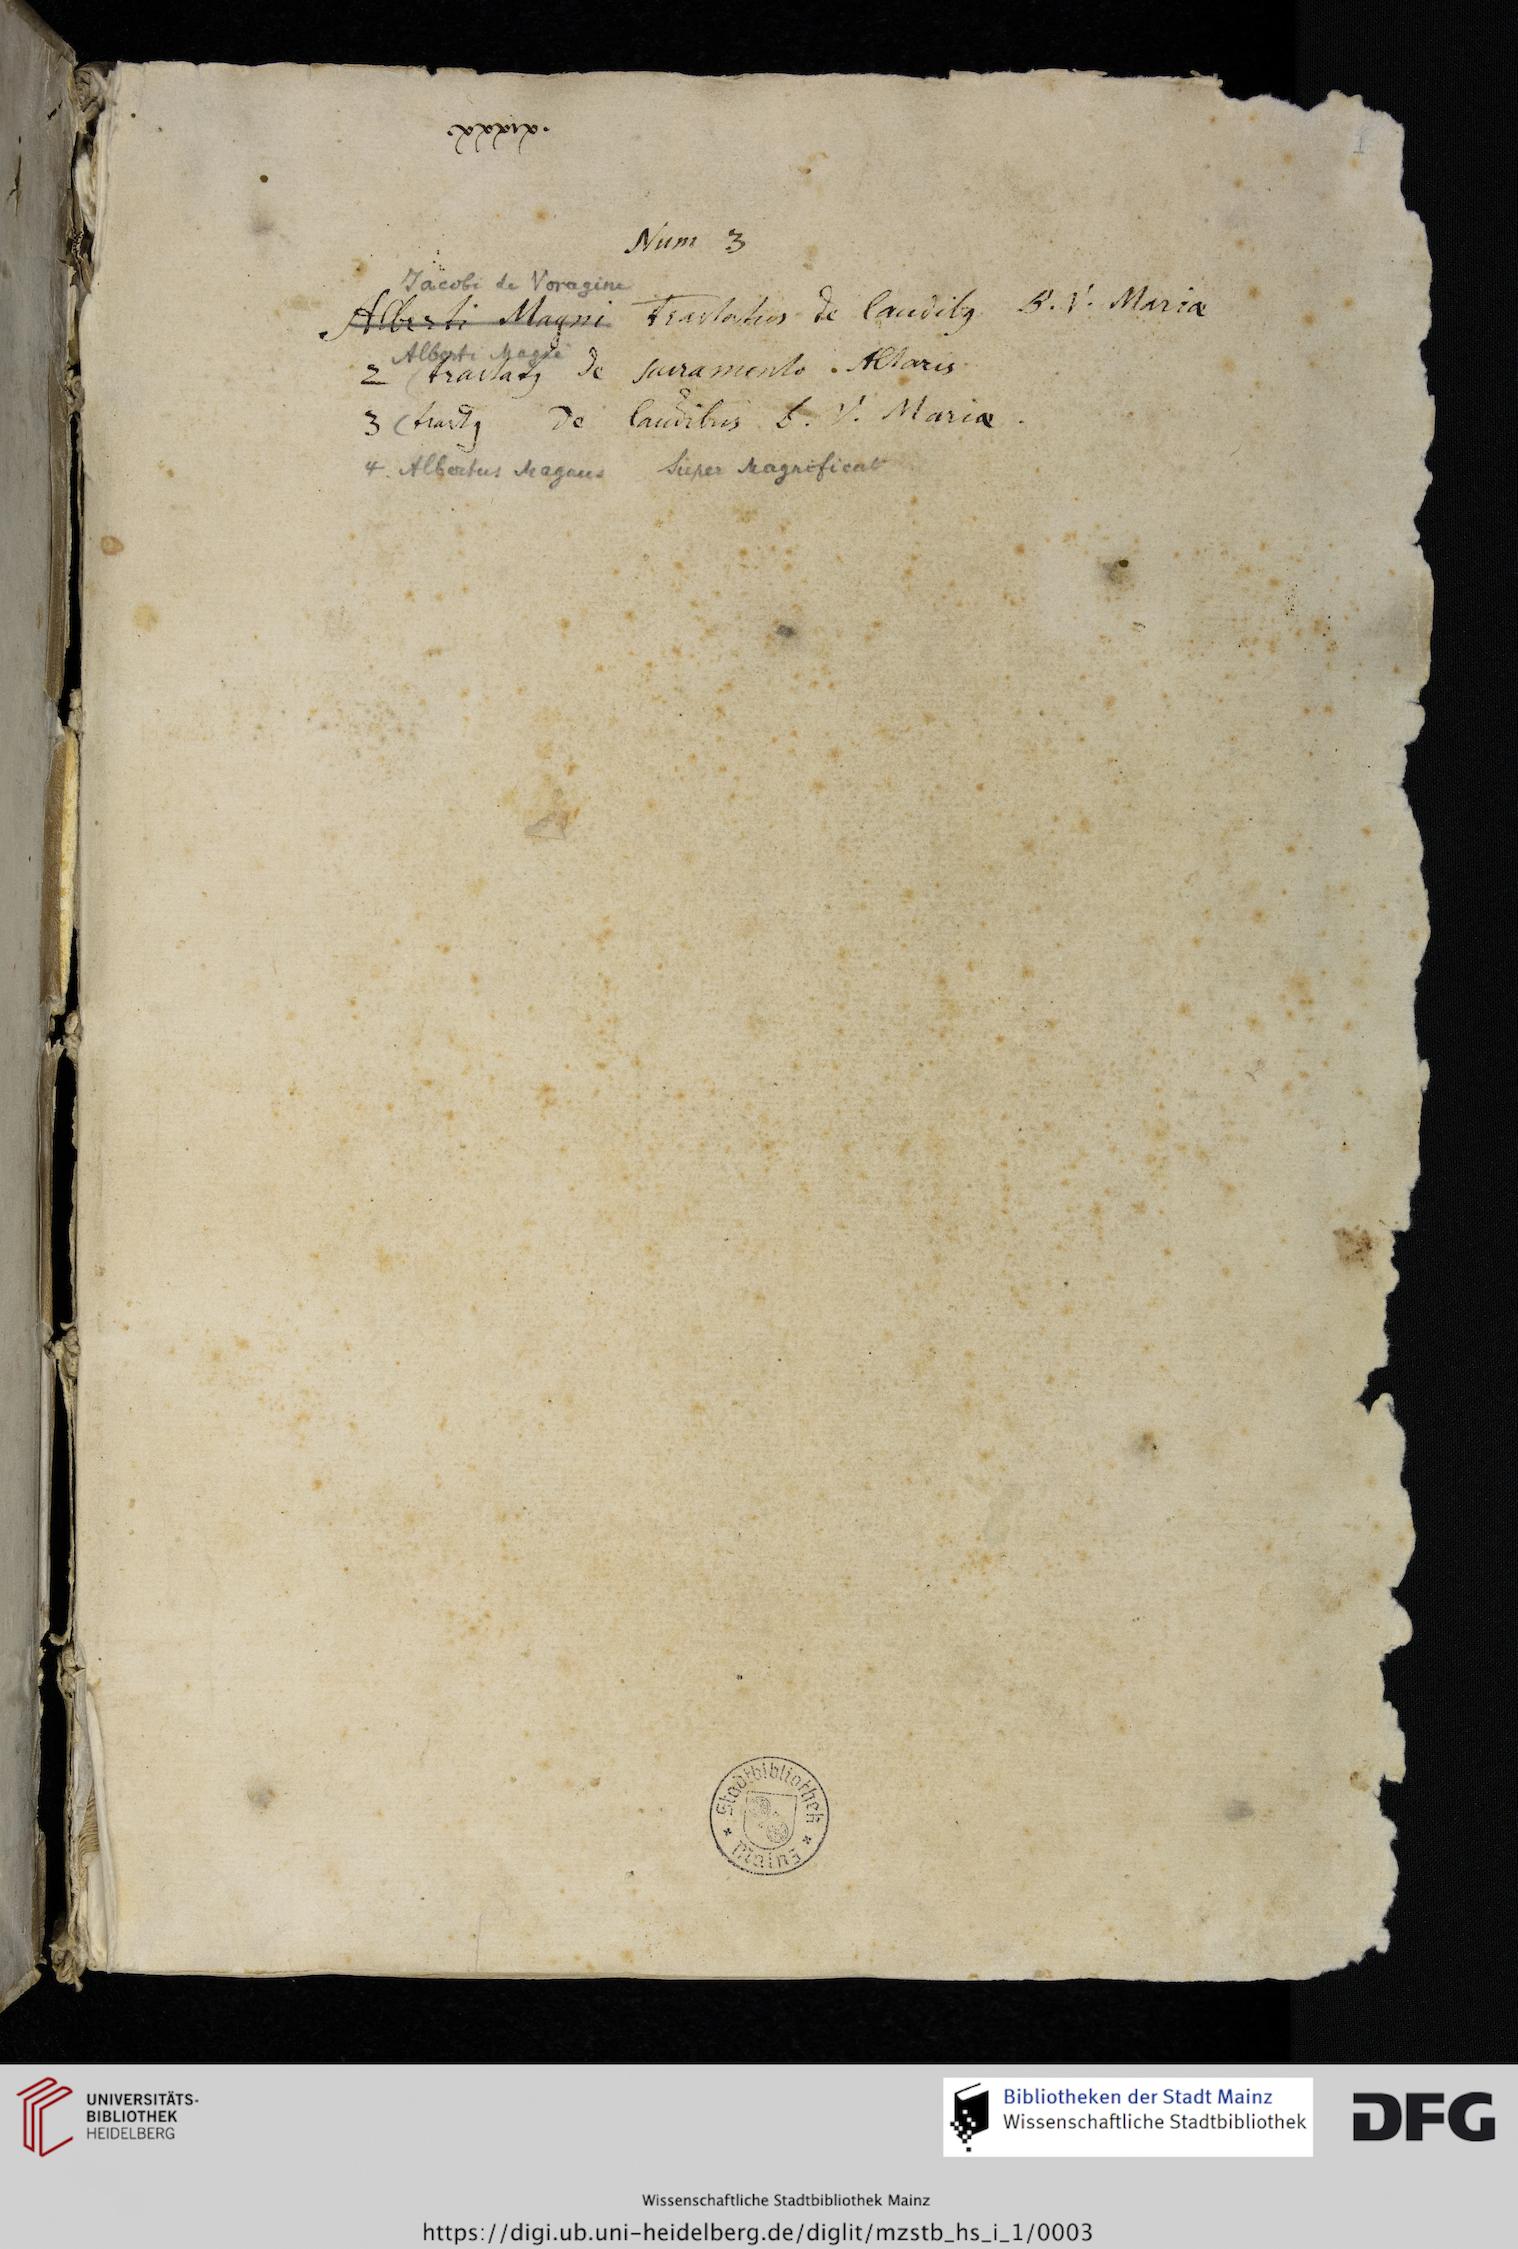 1
Num 3
Jacobi de Voragine
Alberti Magni Tractatus de laudibꝫ B. V. Mariæ
Alberti Magni
2 tractatꝫ de sacramento Altaris
3 tractꝫ de laudibus B. V. Mariæ.
4. Albertus Magnus Super Magnificat
Stadtbibliothek
* Mainz *
UNIVERSITÄTS-
BIBLIOTHEK
HEIDELBERG
Bibliotheken der Stadt Mainz
Wissenschaftliche Stadtbibliothek
DFG
Wissenschaftliche Stadtbibliothek Mainz
https://digi.ub.uni-heidelberg.de/diglit/mzstb_hs_i_1/0003